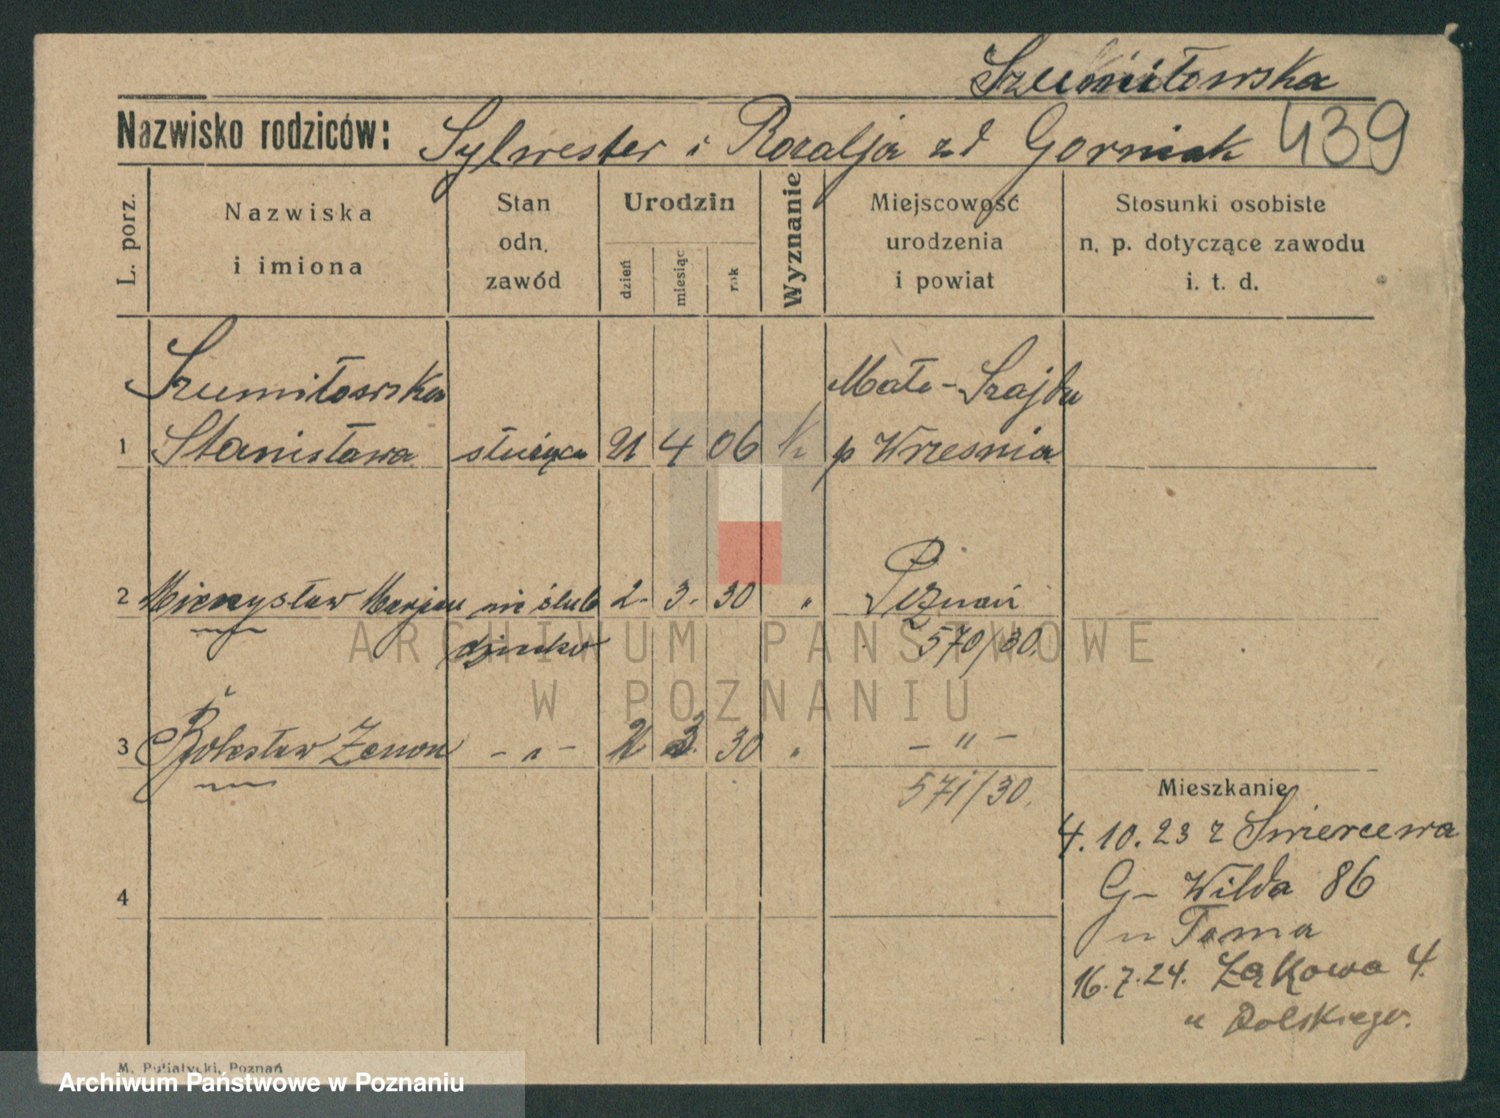 Szumiłowska
Nazwisko rodziców: Sylwester i Rozalja zd Gorniak 439
L. porz.
Nazwiska
i imiona
Stan
odn.
zawód
Urodzin
dzień
miesiąc
rok
Wyznanie
Miejscowość
urodzenia
i powiat
Stosunki osobiste
n. p. dotyczące zawodu
i. t. d.
Szumiłowska Mała-Szajdu
1 Stanisława służąca 21 4 06 k p Wrzesnia
2 Mieczysław Marjan nie ślub 2. 3. 30 " Poznań
dziecko 570/30.
3 Bolesław Zenon - " - 2 3. 30 " - " -
571/30.
Mieszkanie
4. 10. 23 z Swiercewa
4 G- Wilda 86
u Toma
16. 7. 24. Łąkowa 4.
u Dolskiego.
M. Putiatycki, Poznań
ARCHIWUM PAŃSTWOWE
W POZNANIU
Archiwum Państwowe w Poznaniu